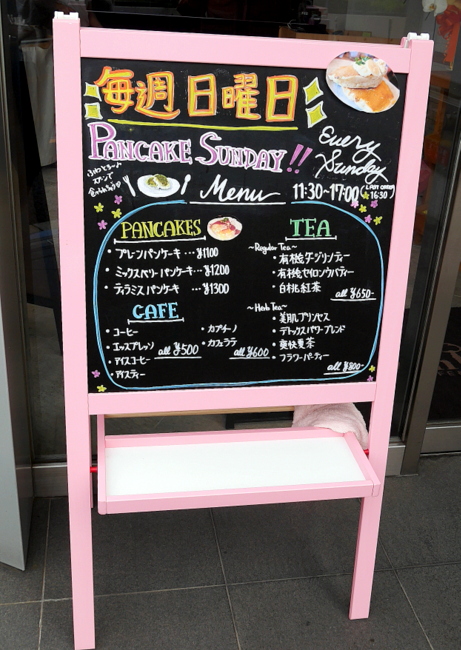 毎週日曜日
PANCAKE SUNDAY!!
Every Sunday
Menu
11:30~17:00 (LAST ORDER 16:30)
PANCAKES
・プレーンパンケーキ …¥1100
・ミックスベリーパンケーキ …¥1200
・ティラミスパンケーキ …¥1300
CAFE
・コーヒー
・エスプレッソ
・アイスコーヒー
・アイスティー
all ¥500
・カプチーノ
・カフェラテ
all ¥600
TEA
~Regular Tea~
・有機ダージリンティー
・有機セイロンウバティー
・白桃紅茶
all ¥650-
~Herb Tea~
・美肌プリンセス
・デトックスパワーブレンド
・爽快夏茶
・フラワーパーティー
all ¥800-